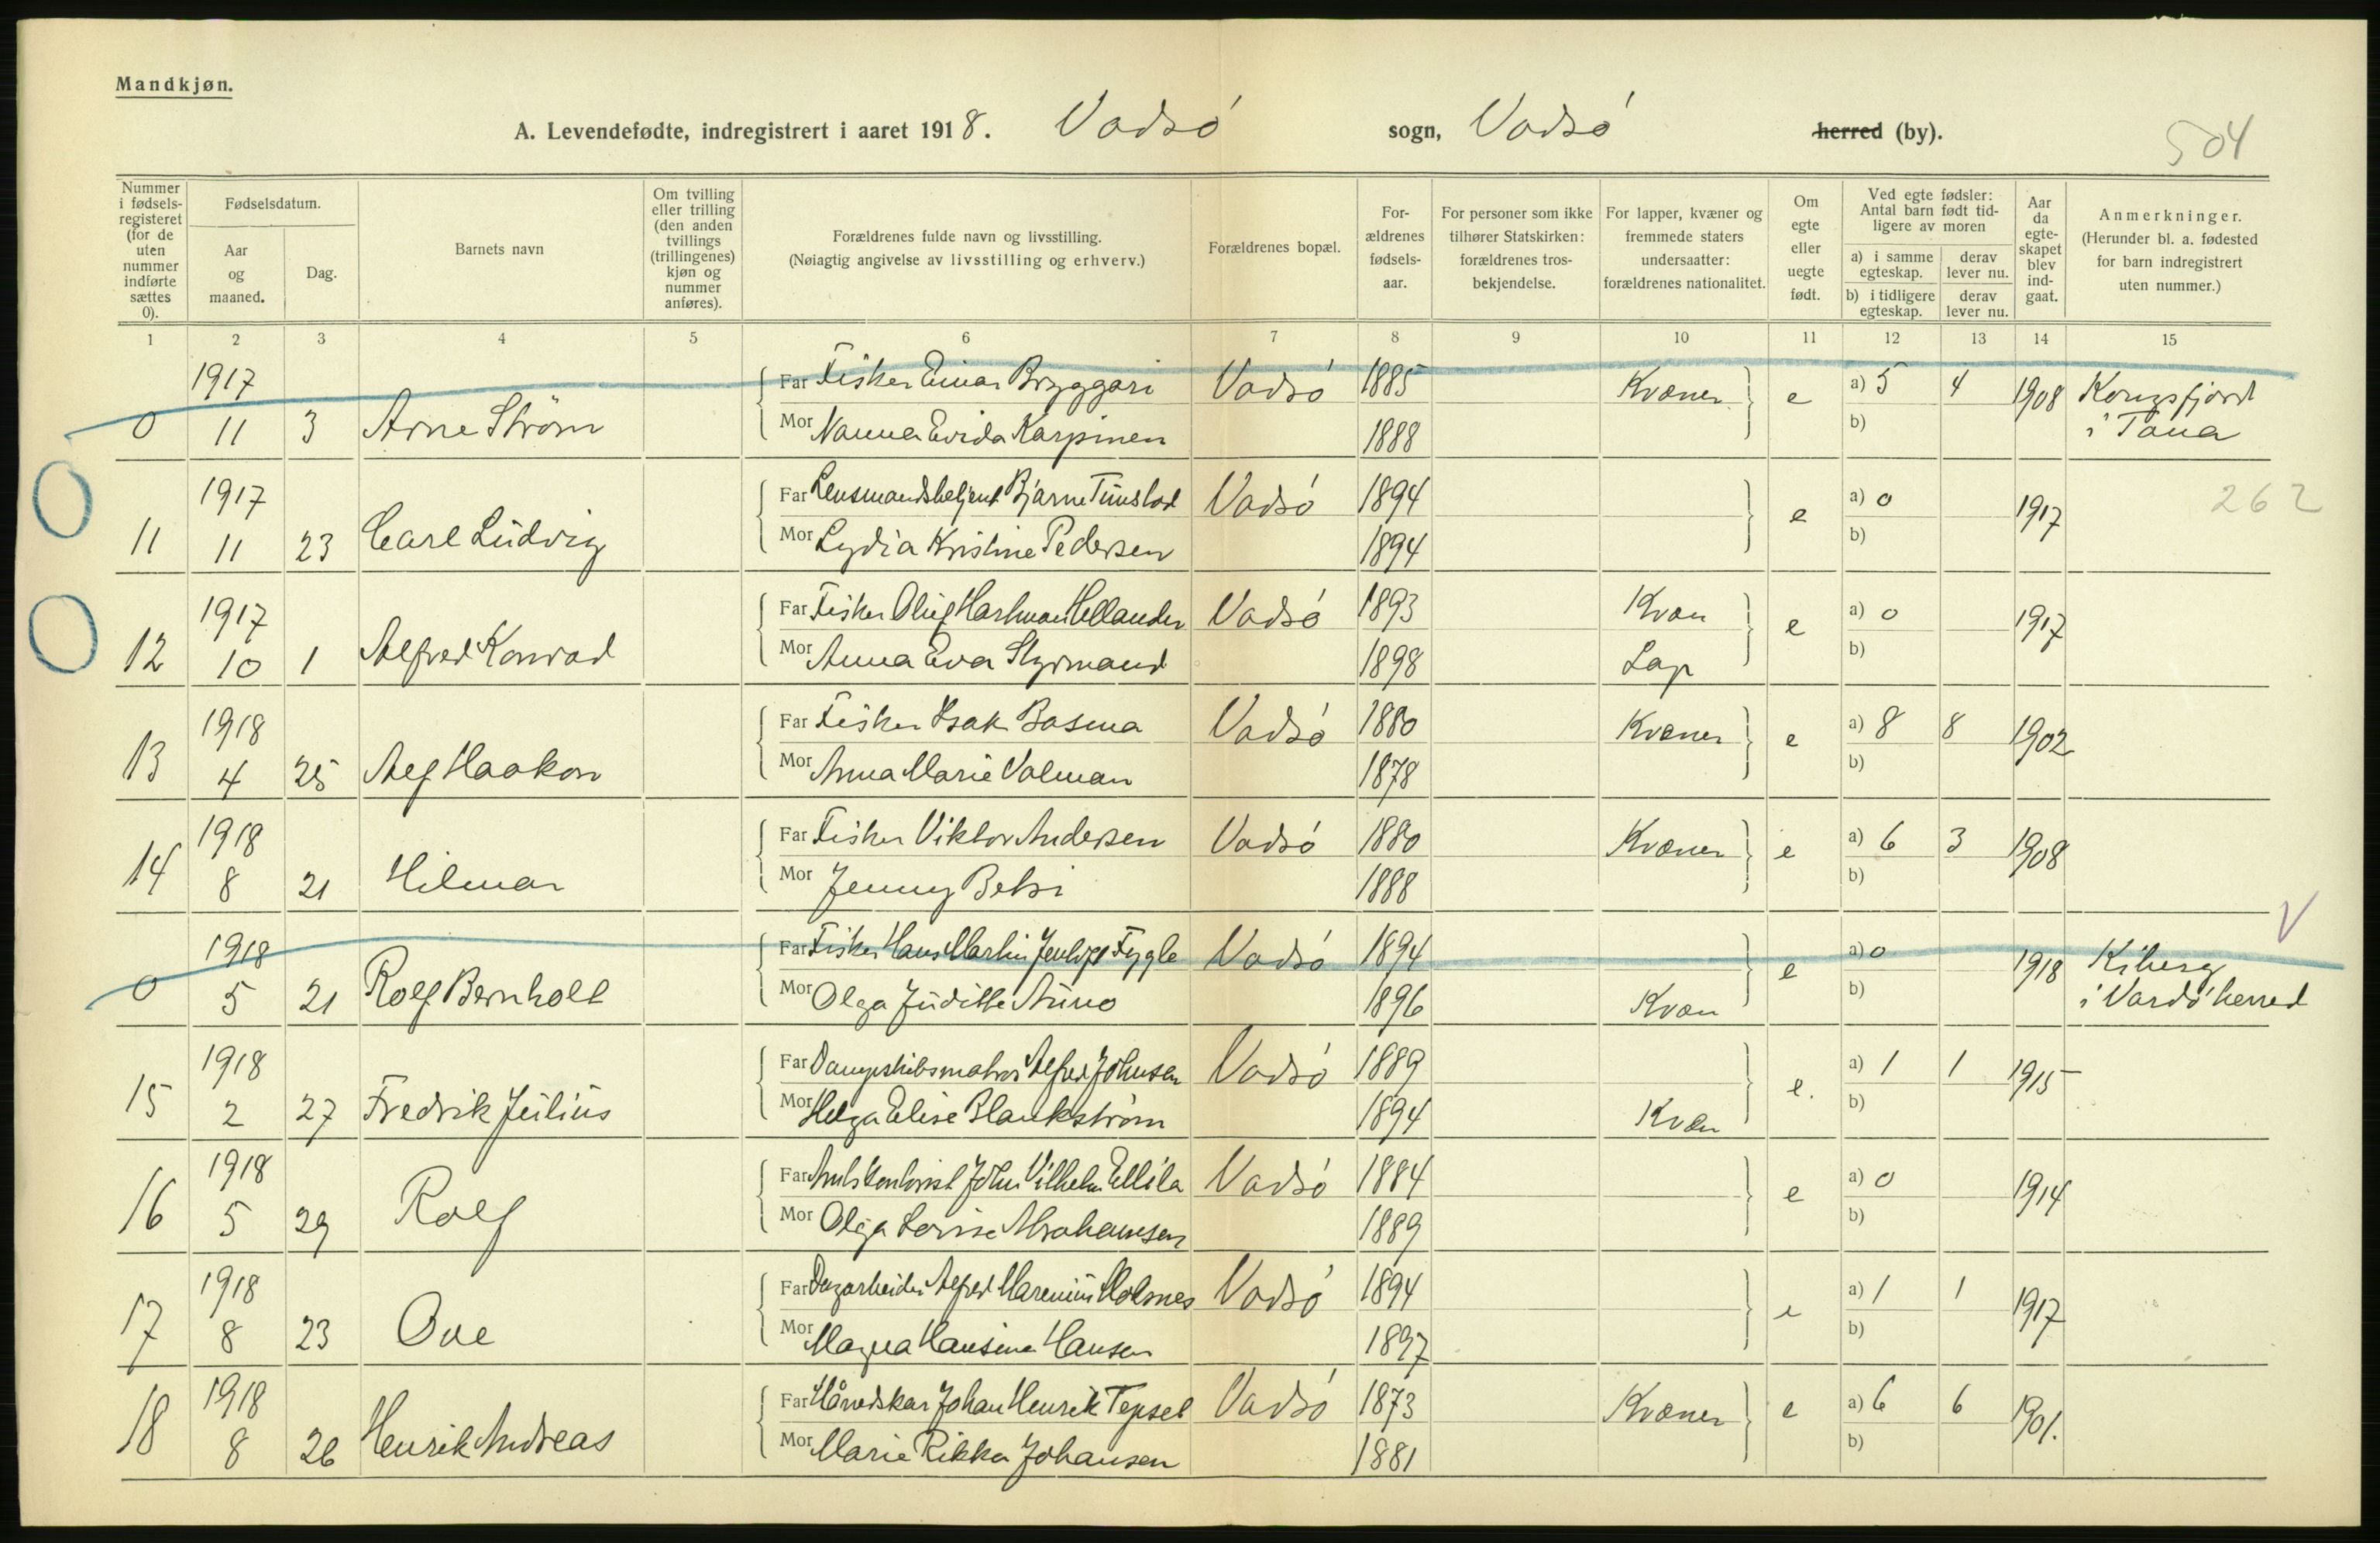 Mandkjøn.
A. Levendefødte, indregistrert i aaret 1918. Vadsø sogn, Vadsø herred (by).
504
Nummer i fødsels-registeret (for de uten nummer indførte sættes 0).
Fødselsdatum.
Aar og maaned.
Dag.
Barnets navn
Om tvilling eller trilling (den anden tvillings (trillingenes) kjøn og nummer anføres).
Forældrenes fulde navn og livsstilling.
(Nøiagtig angivelse av livsstilling og erhverv.)
Forældrenes bopæl.
For-ældrenes fødsels-aar.
For personer som ikke tilhører Statskirken: forældrenes tros-bekjendelse.
For lapper, kvæner og fremmede staters undersaatter: forældrenes nationalitet.
Om egte eller uegte født.
Ved egte fødsler: Antal barn født tid-ligere av moren
a) i samme egteskap.
derav lever nu.
b) i tidligere egteskap.
derav lever nu.
Aar da egte-skapet blev ind-gaat.
Anmerkninger.
(Herunder bl. a. fødested for barn indregistrert uten nummer.)
1 2 3 4 5 6 7 8 9 10 11 12 13 14 15
1917 Far Fisker Einar Bryggari Vadsø 1885 Kvæner e a) 5 4 1908 Kongsfjord
0 11 3 Arne Strøm Mor Nanna Evida Karpinen 1888 b) i Tana
1917 Far Lensmandsbetjent Bjarne Vadsø 1894 e a) 0 1917 262
11 11 23 Carl Ludvig Mor Lydia Kristine Pedersen 1894 b)
1917 Far Fisker Oluf Hartman Hellander Vadsø 1893 Kvæn e a) 0 1917
12 10 1 Alfred Konrad Mor Anna Eva Styrmand 1898 Lap b)
1918 Far Fisker Isak Basma Vadsø 1880 Kvæner e a) 8 8 1902
13 4 25 Alf Haakon Mor Anna Marie Valman 1878 b)
1918 Far Fisker Viktor Andersen Vadsø 1880 Kvæner e a) 6 3 1908
14 8 21 Hilmar Mor Jenny Betsi 1888 b)
V
1918 Far Fisker Hans Martin Fygle Vadsø 1894 e a) 0 1918 Kiberg
0 5 21 Rolf Bernholt Mor Olga Judithe Auno 1896 Kvæn b) i Vardø herred
1918 Far Dampskibsmatros Alfred Johnsen Vadsø 1889 e. a) 1 1 1915
15 2 27 Fredrik Julius Mor Helga Elise Blankstrøm 1894 Kvæn b)
1918 Far Amtskontorist John Vilhelm Ellila Vadsø 1884 e a) 0 1914
16 5 29 Rolf Mor Olga Lovise Abrahamsen 1889 b)
1918 Far Dagarbeider Alfred Marenius Holmnes Vadsø 1894 e a) 1 1 1917
17 8 23 Ove Mor Magna Hansine Hansen 1897 b)
1918 Far Johan Henrik Tepsel Vadsø 1873 Kvæner e a) 6 6 1901.
18 8 26 Henrik Andreas Mor Marie Rikka Johansen 1881 b)